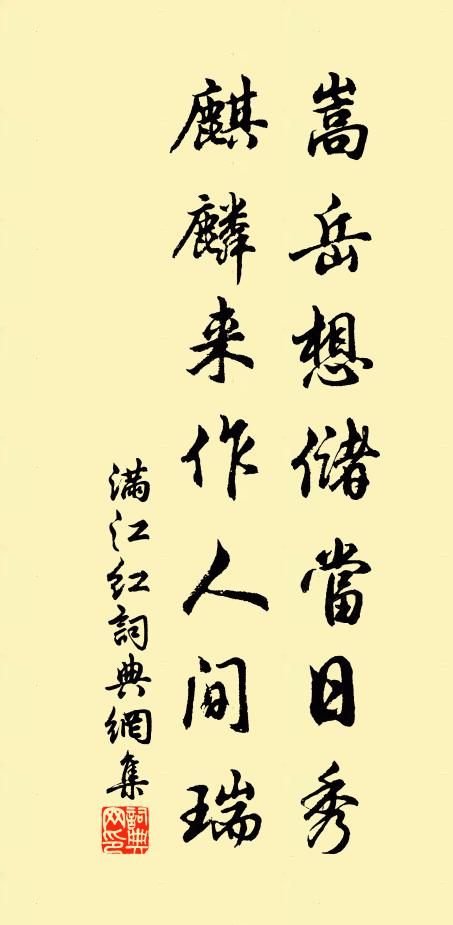 嵩岳想儲當日秀
麒麟来作人间瑞
满江红詞典網集
詞典网印